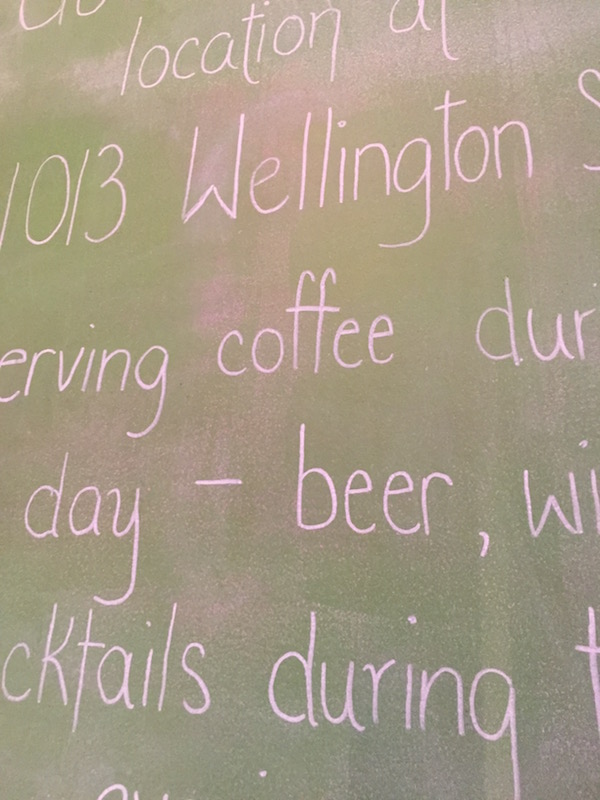 location at
1013 Wellington S
erving coffee dur
day - beer, wi
cktails during t